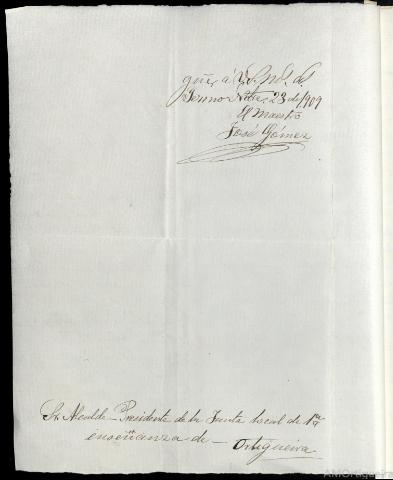 gue á V. ms. as.
Senno 23 de 1909
El Maestro
José Gómez
Sr. Alcalde-Presidente de la Junta local de 1ra
enseñanza de - Ortigueira
AMOrtigueira